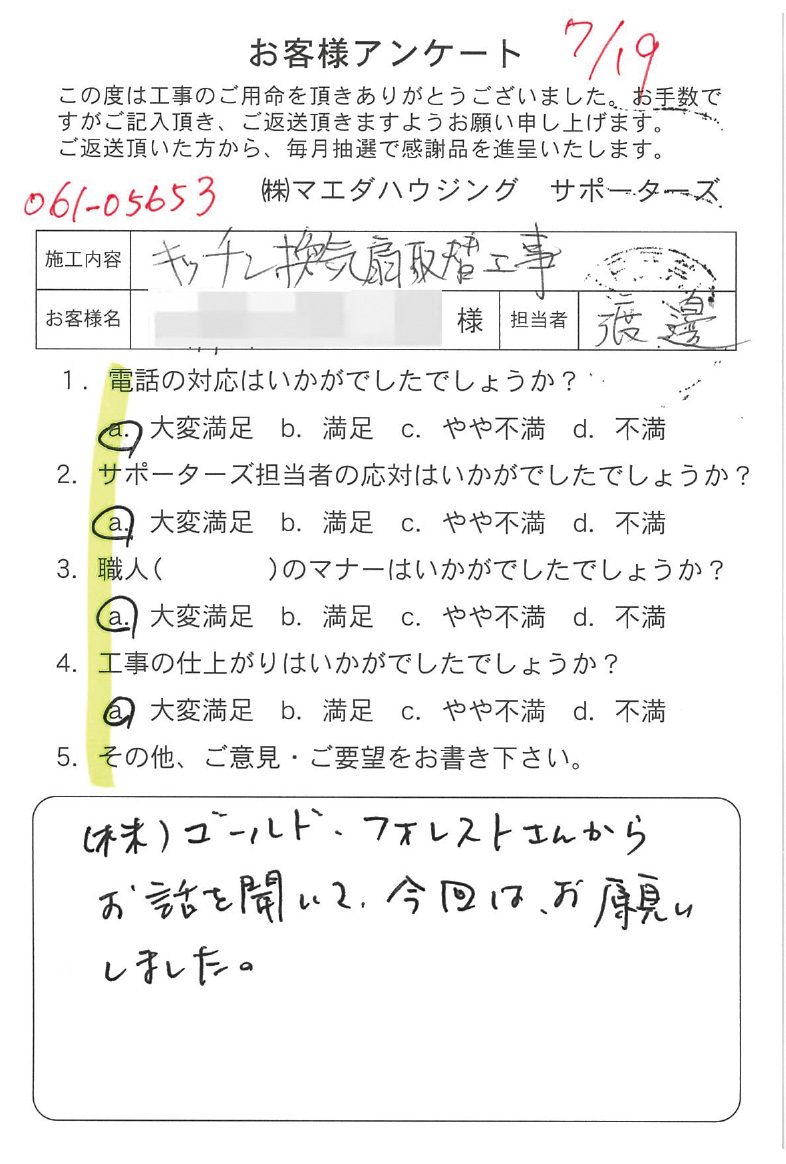 お客様アンケート
7/19
この度は工事のご用命を頂きありがとうございました。お手数で
すがご記入頂き、ご返送頂きますようお願い申し上げます。
ご返送頂いた方から、毎月抽選で感謝品を進呈いたします。
061-05653
㈱マエダハウジング サポーターズ
施工内容 キッチン換気扇取替工事
お客様名 様 担当者 渡邊
1. 電話の対応はいかがでしたでしょうか？
a. 大変満足 b. 満足 c. やや不満 d. 不満
2. サポーターズ担当者の応対はいかがでしたでしょうか？
a. 大変満足 b. 満足 c. やや不満 d. 不満
3. 職人( )のマナーはいかがでしたでしょうか？
a. 大変満足 b. 満足 c. やや不満 d. 不満
4. 工事の仕上がりはいかがでしたでしょうか？
a. 大変満足 b. 満足 c. やや不満 d. 不満
5. その他、ご意見・ご要望をお書き下さい。
(株)ゴールド、フォレストさんから
お話を聞いて、今回は、お願い
しました。